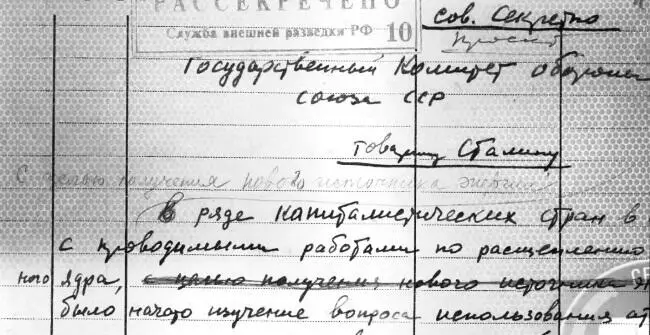 РАССЕКРЕЧЕНО
Служба внешней разведки РФ 10
Сов. Секретно
проект
Государственный Комитет обороны
союза ССР
товарищу Сталину
С целью получения нового источника энергии
В ряде капиталистических стран в
с проводимыми работами по расщеплению
ного ядра, с целью получения нового источника э
было начато изучение вопроса использования ат